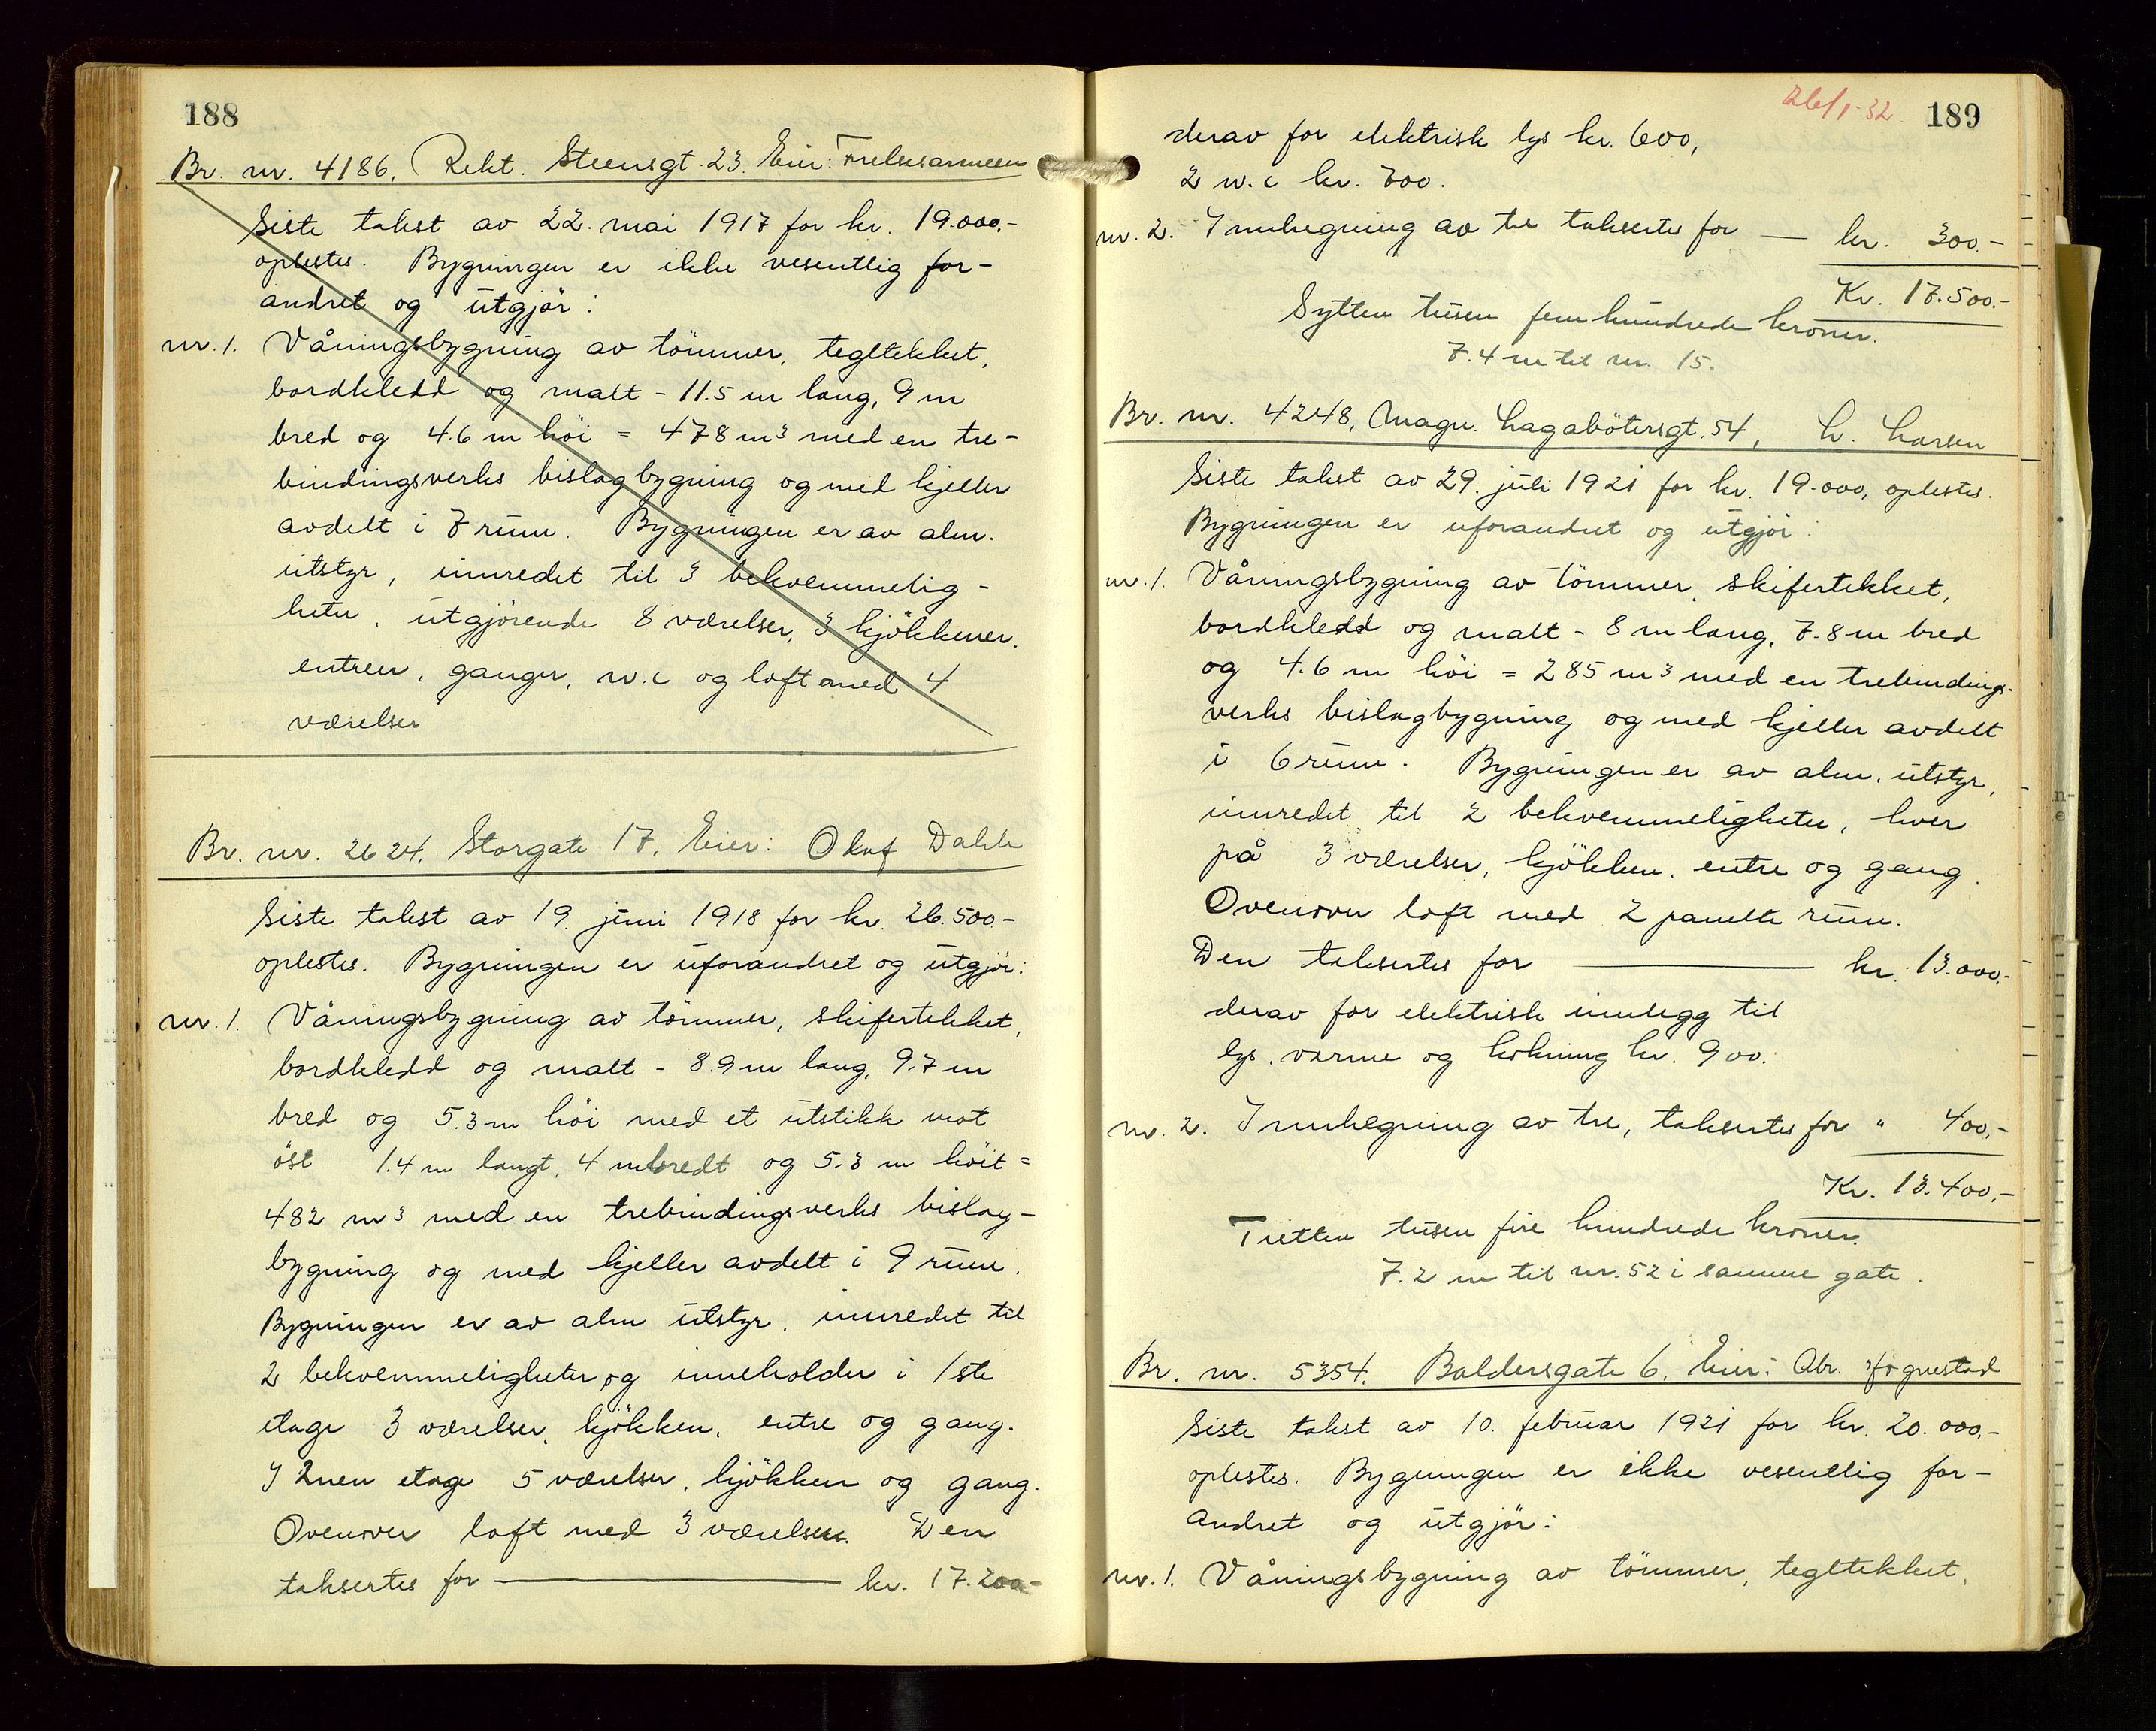 188
Br. nr. 4186, Rekt. Steensgt. 23. Eier: Frelsesarmeen
Siste takst av 22. mai 1917 for kr. 19.000,-
oplestes. Bygningen er ikke vesentlig for-
andret og utgjör:
nr. 1. Våningsbygning av tömmer, tegltekket,
bordkledd og malt - 11.5 m lang, 9 m
bred og 4.6 m höi = 478 m3 med en tre-
bindingsverks bislagbygning og med kjeller
avdelt i 7 rum. Bygningen er av alm.
utstyr, innredet til 3 bekvemmelig-
heter, utgjörende 8 værelser, 3 kjökkener,
entreer, ganger, w.c og loft med 4
værelser
Br. nr. 2624. Storgate 17. Eier: Olaf Dahle
Siste takst av 19. juni 1918 for kr. 26.500.-
oplestes. Bygningen er uforandret og utgjör:
nr. 1. Våningsbygning av tömmer, skifertekket,
bordkledd og malt - 8.9 m lang, 9.7 m
bred og 5.3 m höi med et utstikk mot
öst 1.4 m langt, 4 m bredt og 5.3 m höit =
482 m3 med en trebindingsverks bislag-
bygning og med kjeller avdelt i 9 rum.
Bygningen er av alm utstyr, innredet til
2 bekvemmeligheter og inneholder i 1ste
etage 3 værelser, kjökken, entre og gang.
I 2nen etage 5 værelser, kjökken og gang.
Ovenover loft med 3 værelser. Den
taksertes for — kr. 17.200-
26/1-32 189
derav for elektrisk lys kr. 600,
2 w.c kr. 700.
nr. 2. Innhegning av tre taksertes for — kr. 300.-
Kr. 17.500.-
Sytten tusen fem hundrede kroner.
7.4 m til nr. 15.
Br. nr. 4248, Magn. Lagabötersgt. 54, L. Larsen
Siste takst av 29. juli 1921 for kr. 19.000, oplestes.
Bygningen er uforandret og utgjör:
nr. 1. Våningsbygning av tömmer, skifertekket,
bordkledd og malt - 8 m lang, 7.8 m bred
og 4.6 m höi = 285 m3 med en trebindings-
verks bislagbygning og med kjeller avdelt
i 6 rum. Bygningen er av alm. utstyr,
innredet til 2 bekvemmeligheter, hver
på 3 værelser, kjökken, entre og gang.
Ovenover loft med 2 panelte rum.
Den taksertes for — kr. 13.000,-
derav for elektrisk innlegg til
lys, varme og kokning kr. 900.
nr. 2. Innhegning av tre, taksertes for " 400,-
Kr. 13.400,-
Tretten tusen fire hundrede kroner.
7.2 m til nr. 52 i samme gate.
Br. nr. 5354. Baldersgate 6. Eier: Abr.
Siste takst av 10. februar 1921 for kr. 20.000,-
oplestes. Bygningen er ikke vesentlig for-
andret og utgjör:
nr. 1. Våningsbygning av tömmer, tegltekket,